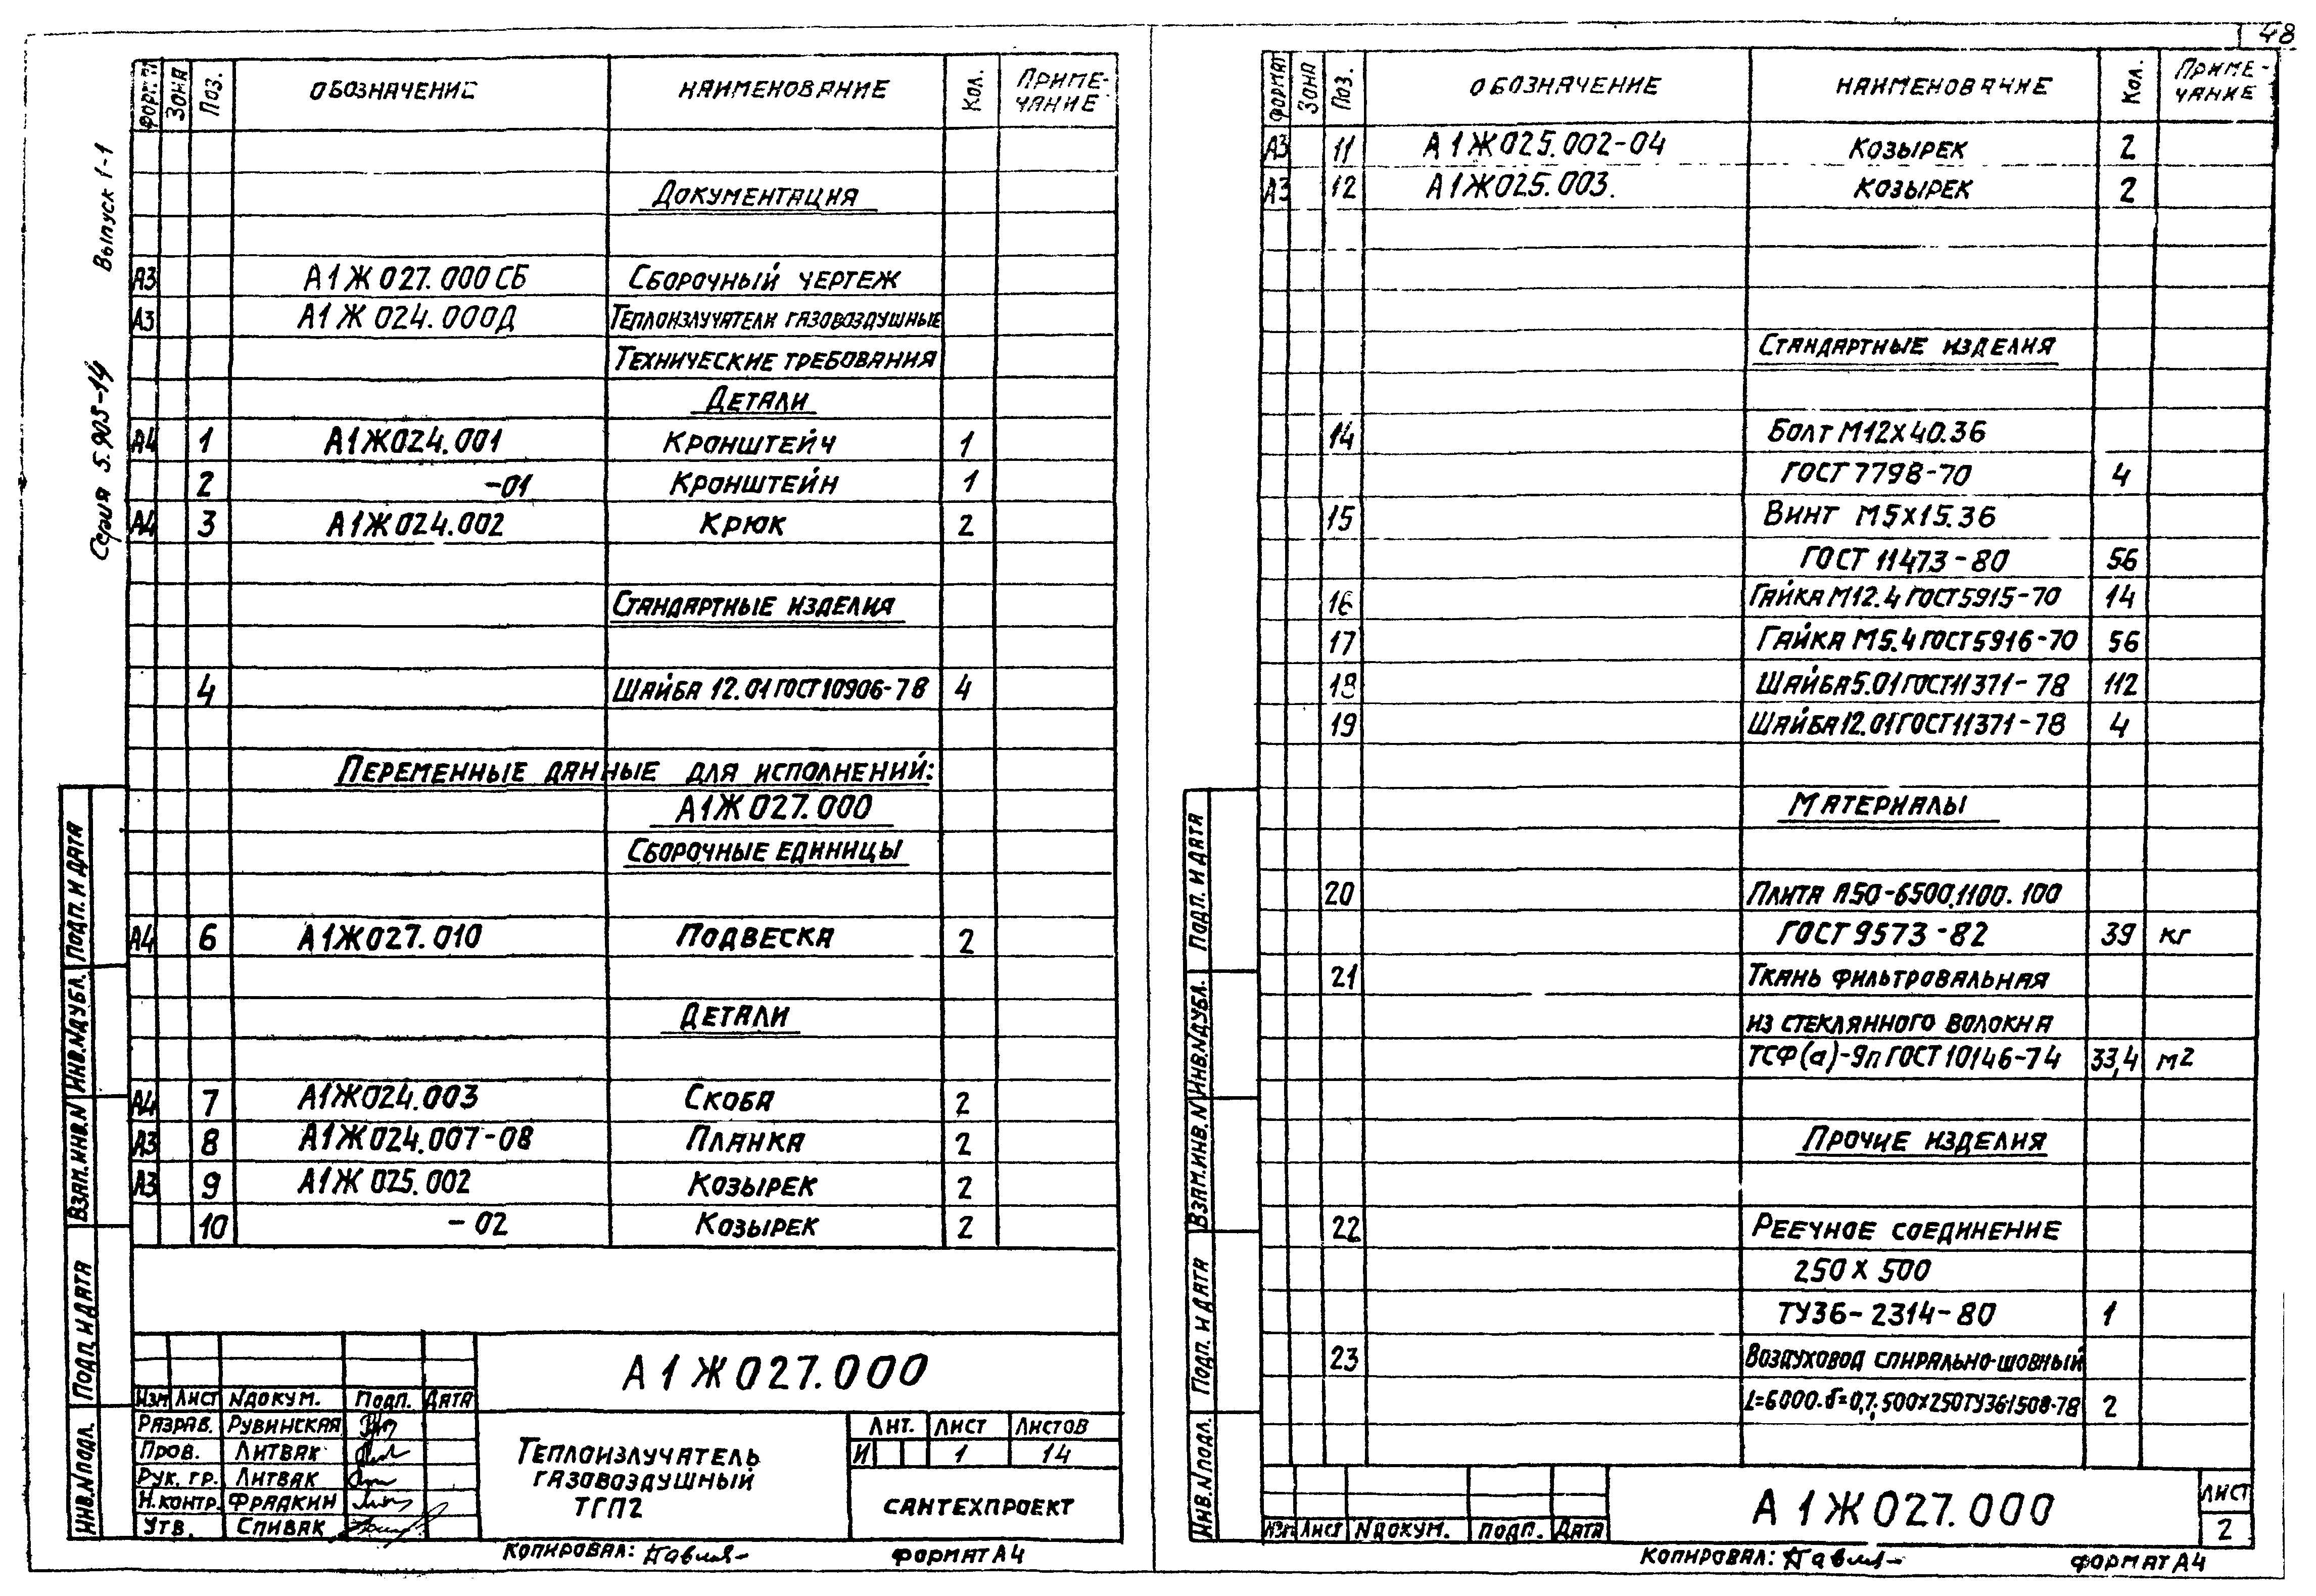 48
Выпуск 1-1
Серия 5.905-14
Зона
Поз.
Обозначение
Наименование
Кол.
Приме-
чание
Документация
А3 А1Ж027.000СБ Сборочный чертеж
А3 А1Ж024.000Д Теплоизлучатели газовоздушные
Технические требования
Детали
А4 1 А1Ж024.001 Кронштейн 1
2 -01 Кронштейн 1
А4 3 А1Ж024.002 Крюк 2
Стандартные изделия
4 Шайба 12.01 ГОСТ 10906-78 4
Переменные данные для исполнений:
А1Ж027.000
Сборочные единицы
А4 6 А1Ж027.010 Подвеска 2
Детали
А4 7 А1Ж024.003 Скоба 2
А3 8 А1Ж024.007-08 Планка 2
А3 9 А1Ж025.002 Козырек 2
10 -02 Козырек 2
Подп. и дата
Инв.№дубл.
Взам.инв.№
Подп. и дата
Инв.№подл.
Изм Лист №докум. Подп. Дата
Разраб. Рувинская
Пров. Литвак
Рук. гр. Литвак
Н.контр. Фрадкин
Утв. Спивак
А1Ж027.000
Теплоизлучатель
газовоздушный
ТГП2
Лит. Лист Листов
И 1 14
Сантехпроект
Копировал:
Формат А4
Формат
Зона
Поз.
Обозначение
Наименование
Кол.
Приме-
чание
А3 11 А1Ж025.002-04 Козырек 2
А3 12 А1Ж025.003. Козырек 2
Стандартные изделия
14 Болт М12х40.36
ГОСТ 7798-70 4
15 Винт М5х15.36
ГОСТ 11473-80 56
16 Гайка М12.4 ГОСТ 5915-70 14
17 Гайка М5.4 ГОСТ 5916-70 56
18 Шайба 5.01 ГОСТ 11371-78 112
19 Шайба 12.01 ГОСТ 11371-78 4
Материалы
20 Плита А50-6500.1100.100
ГОСТ 9573-82 39 кг
21 Ткань фильтровальная
из стеклянного волокна
ТСФ(а)-9п ГОСТ 10146-74 33,4 м2
Прочие изделия
22 Реечное соединение
250 х 500
ТУ36-2314-80 1
23 Воздуховод спирально-шовный
L=6000.δ=0,7;500х250ТУ361508-78 2
Подп. и дата
Инв.№дубл.
Взам.инв.№
Подп. и дата
Инв.№подл.
Изм Лист №докум. Подп. Дата
А1Ж027.000
Лист
2
Копировал:
Формат А4